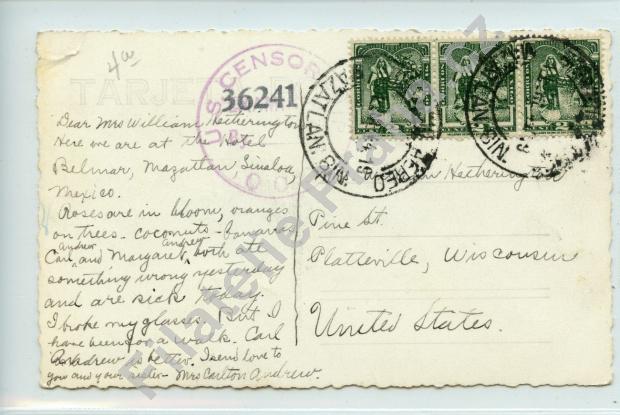 4w
TARJE
U.S. CENSOR
36241
MAZATLAN, SIN.
AEREO
MAZATLAN, SIN.
Dear Mrs William Hetherington
Here we are at the Hotel
Belmar, Mazattan Sinaloa,
Mexico.
Roses are in bloom, oranges
on trees - coconuts - bananas
Andrew Andrew
Carl and Margaret, both ate
something wrong yesterday
and are sick today.
I broke my glasses. But I
have been for a walk. Carl
Andrew is better. I send love to
you and your sister - Mrs Carlton Andrew.
Hetherington
Pine St.
Platteville, Wisconsin
United States.
Filatelie Praha.cz